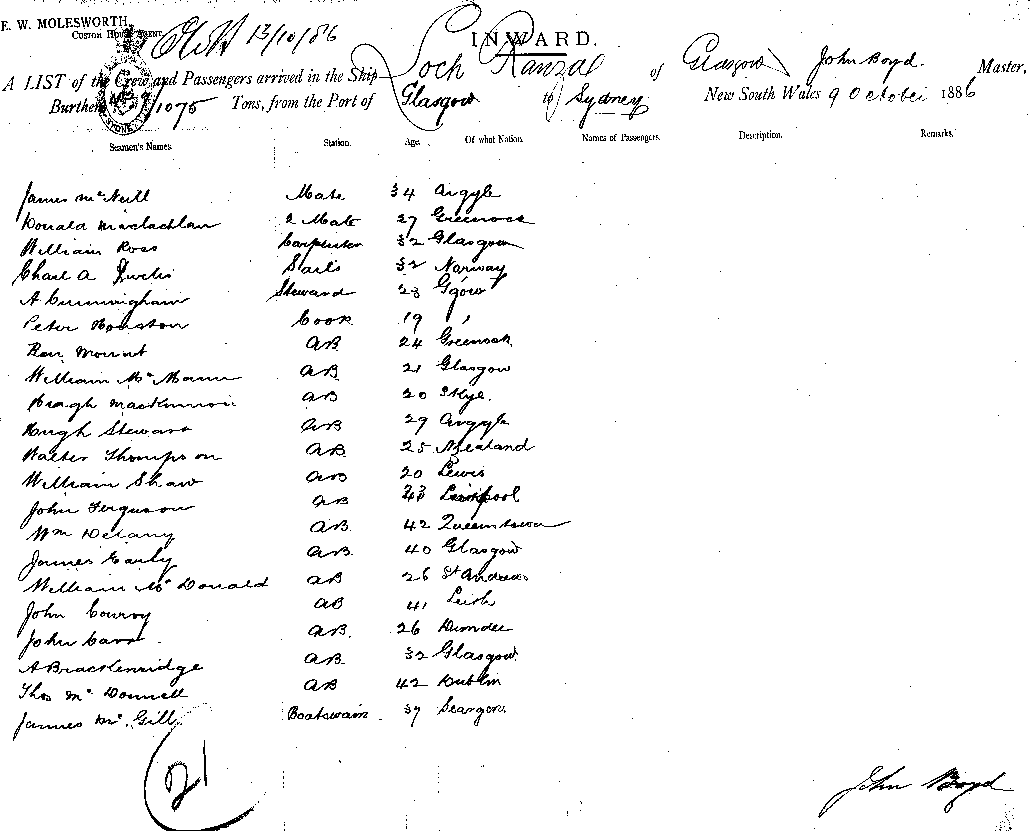 E. W. MOLESWORTH,
CUSTOM HOUSE AGENT.
13/10/86
INWARD.
A LIST of the Crew and Passengers arrived in the Ship Loch Ranza of Glasgow John Boyd. Master,
Burthen 1075 Tons, from the Port of Glasgow to Sydney New South Wales 9 October 1886
Seamen's Names. Station. Age. Of what Nation. Names of Passengers. Description. Remarks.
James McNeill Mate 34 Argyle
Donald Maclachlan 2 Mate 27 Greenock
William Ross Carpenter 32 Glasgow
Charl A Sails 32 Norway
A Cunningham Steward 23 Ggow
Peter Houston Cook 19 "
Ben Mount AB 24 Greenock
William McMann AB 21 Glasgow
Hugh MacKinnon AB 20 Skye.
Hugh Stewart AB 29 Argyle
Walter Thompson AB 25
William Shaw AB 20 Lewis
John Ferguson AB Liverpool
Wm Delany AB 42 Queenstown
James Early AB 40 Glasgow
William McDonald AB 26 St Andrews
John Conroy AB 41 Leith
John Carr AB. 26 Dundee
A Brackenridge AB 32 Glasgow
Thos McDonnell AB 42 Dublin
James Mc. Gill Boatswain 37
21
John Boyd